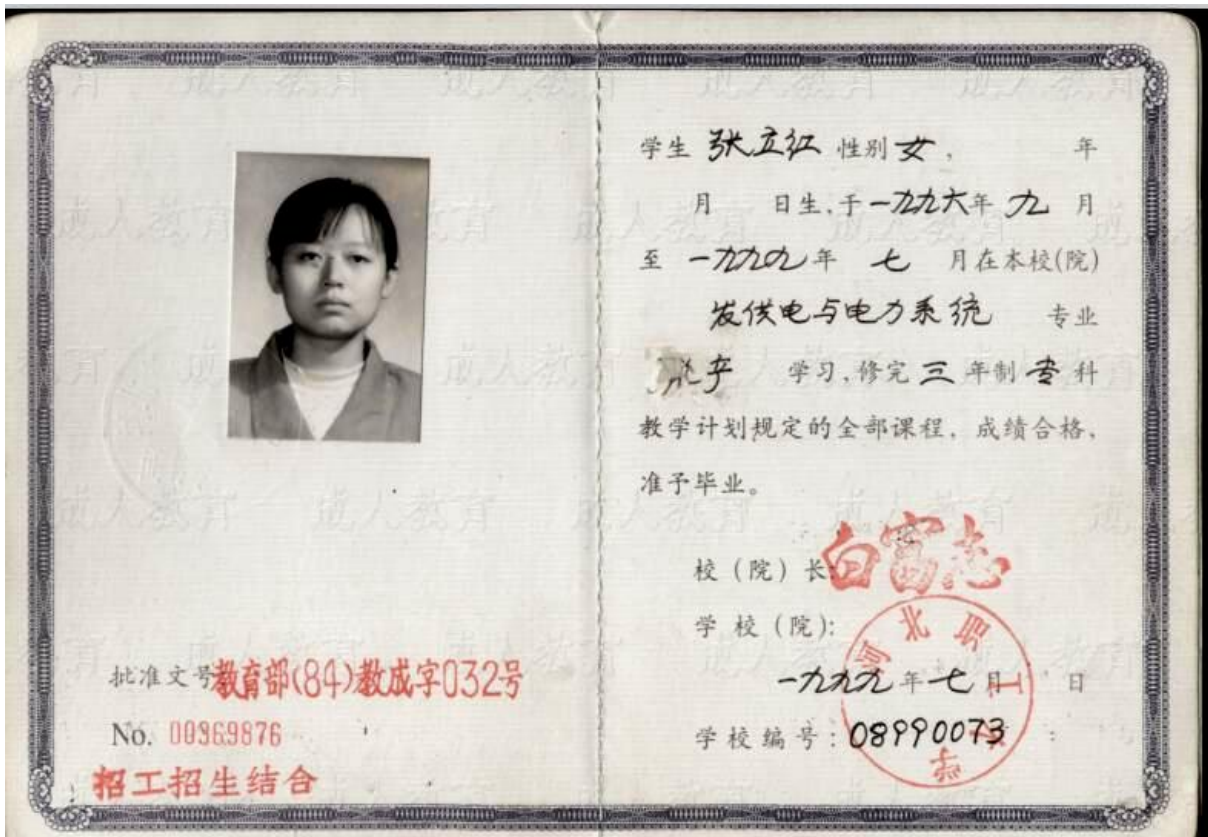 批准文号教育部(84)教成字032号
No. 00369876
招工招生结合
学生 张立红 性别 女, 年
月 日生,于一九九六年 九 月
至 一九九九年 七 月在本校(院)
发供电与电力系统 专业
产 学习,修完 三 年制 专 科
教学计划规定的全部课程,成绩合格,
准予毕业。
校(院)长: 白富志
学校(院):
河北职工大学
一九九九年七月 日
学校编号:08990073
成人教育